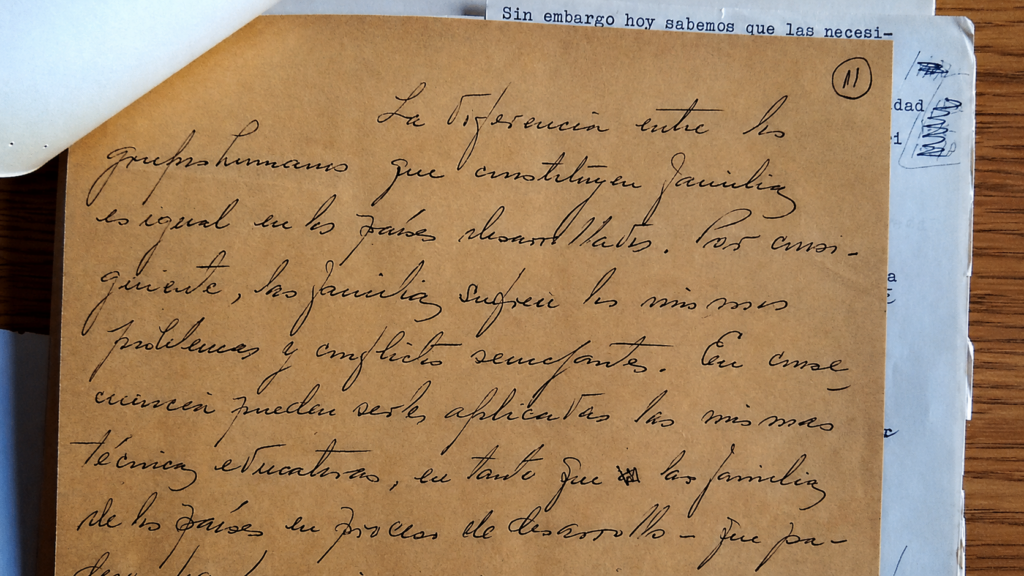 Sin embargo hoy sabemos que las necesi-
11
dad
i
a
La diferencia entre los
grupos humanos que constituyen familias
es igual en los países desarrollados. Por consi-
guiente, las familias sufren los mismos
problemas y conflictos semejantes. En conse-
cuencia pueden serles aplicadas las mismas
técnicas educativas, en tanto que las familias
de los países en proceso de desarrollo - que pa-